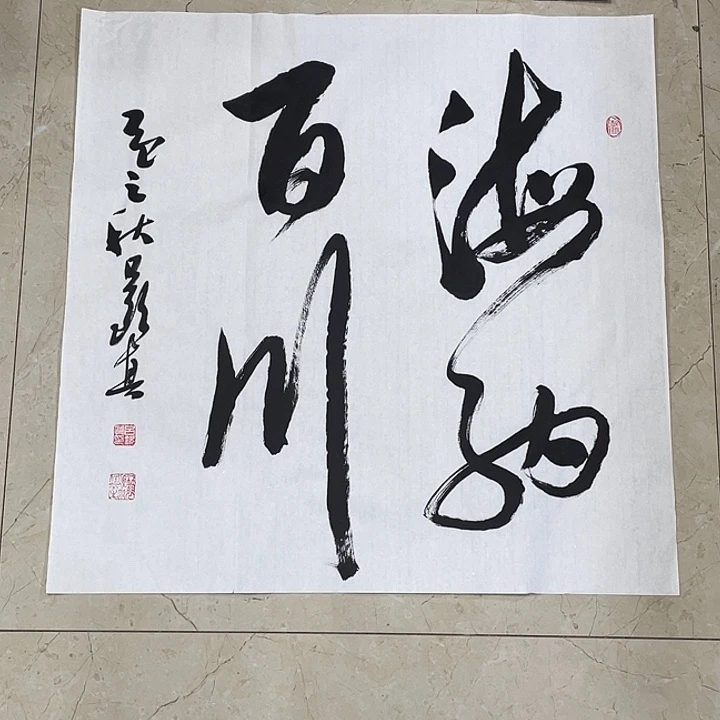 海纳
百川
之秋